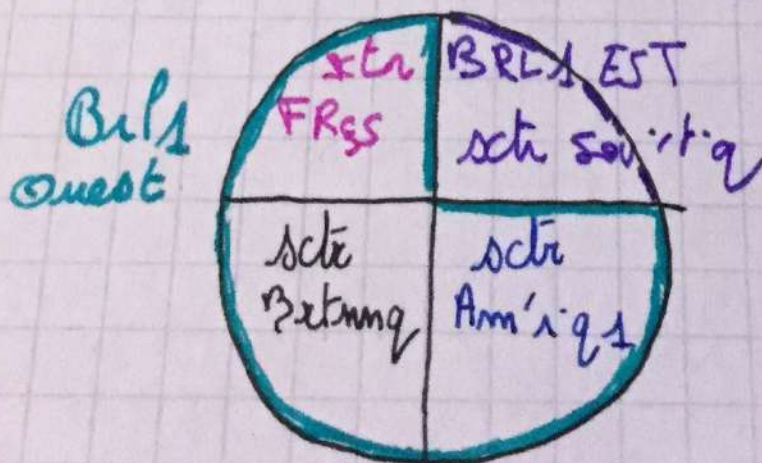 Brl1
Ouest
sctr
FRçs
BRL1 EST
sctr sov'tiq
sctr
Brtnnq
sctr
Am'riq1